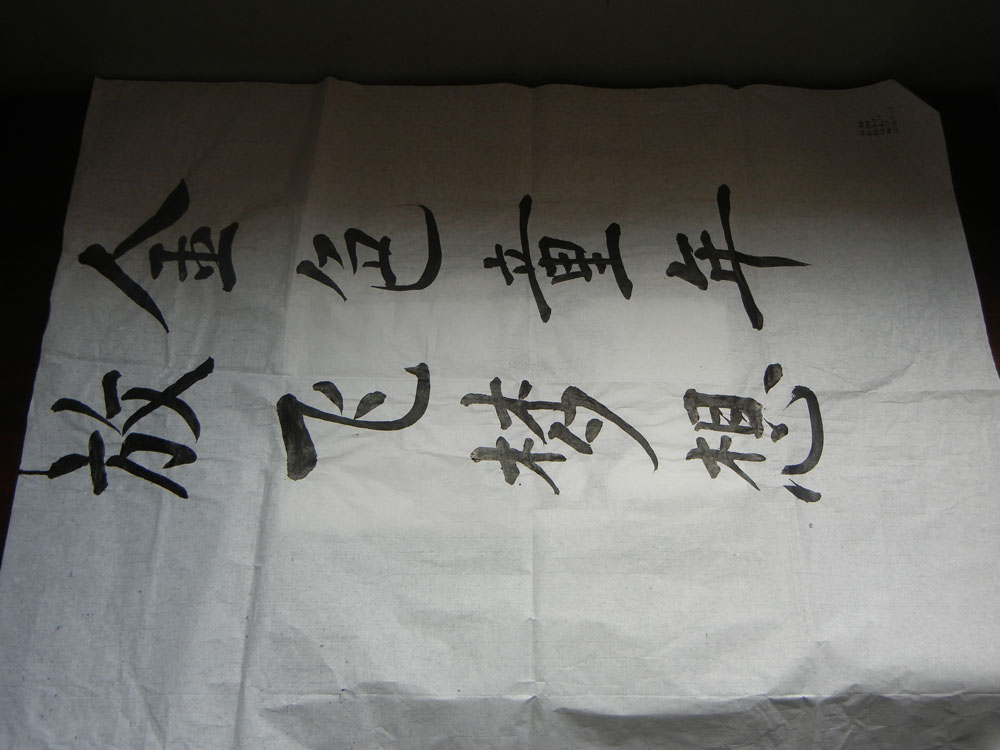 金色童年
放飞梦想